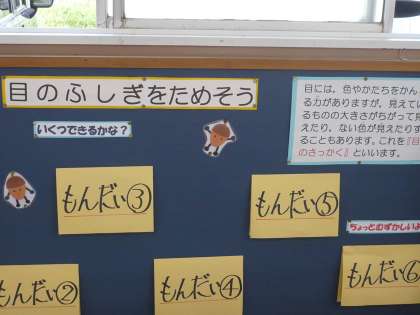 目のふしぎをためそう
いくつできるかな？
目には、色やかたちをかん
る力がありますが、見えてい
るものの大きさがちがって見
えたり、ない色が見えたりす
ることもあります。これを『目
のさっかく』といいます。
もんだい③
もんだい⑤
ちょっとむずかしいよ
もんだい②
もんだい④
もんだい⑥